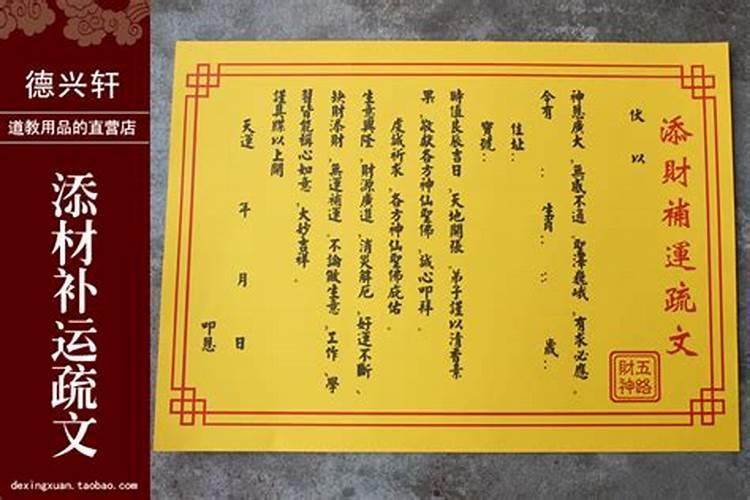 德兴轩
道教用品的直营店
添材补运疏文
dexingxuan.taobao.com
添財補運疏文
五路
財神
伏以
神恩廣大、無感不通、聖澤巍峨、有求必應。
今有：生肖：：歲、
住址：
寶號：
時值良辰吉日、天地開張、弟子謹以清香素
果、敬獻各方神仙聖佛、誠心叩拜
虔誠祈求、各方神仙聖佛庇佑。
生意興隆、財源廣進、消災解厄、好運不斷、
缺財添財、無運補運、不論做生意、工作、學
習皆能稱心如意、大妙吉祥。
謹具牒以上聞
天運年月日
叩恩